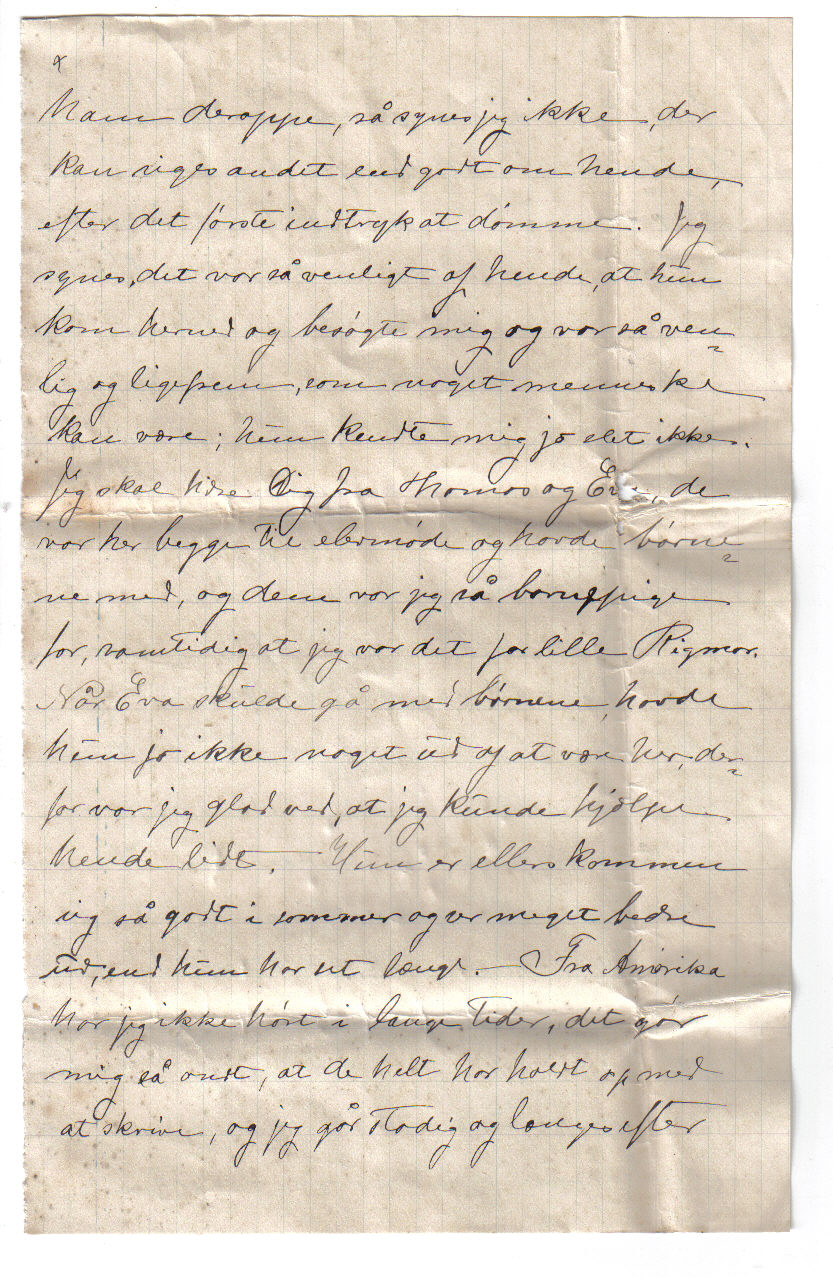 x
ham deroppe, så synes jeg ikke, der
kan siges andet end godt om hende,
efter det første indtryk at dømme. Jeg
synes, det var så venligt af hende, at hun
kom herned og besøgte mig og var så ven=
lig og ligefrem, som noget menneske
kan være; hun kendte mig jo slet ikke.
Jeg skal hilse Dig fra Thomas og Eva, de
var her begge til elevmøde og havde børne=
ne med, og dem var jeg så barnepige
for, samtidig at jeg var det for lille Rigmor.
Når Eva skulde gå med børnene, havde
hun jo ikke noget ud af at være her, der=
for var jeg glad ved, at jeg kunde hjælpe
hende lidt. Hun er ellers kommen
sig så godt i sommer og ser meget bedre
ud, end hun har set længe. — Fra Amerika
har jeg ikke hørt i lange tider, det gør
mig så ondt, at de helt har holdt op med
at skrive, og jeg går stadig og længes efter